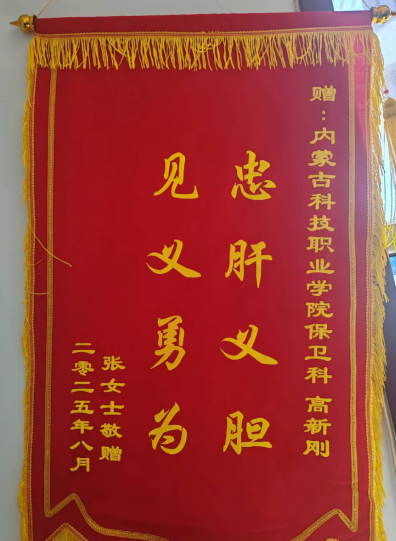 赠：内蒙古科技职业学院保卫科 高新刚
忠肝义胆
见义勇为
张女士敬赠
二零二五年八月